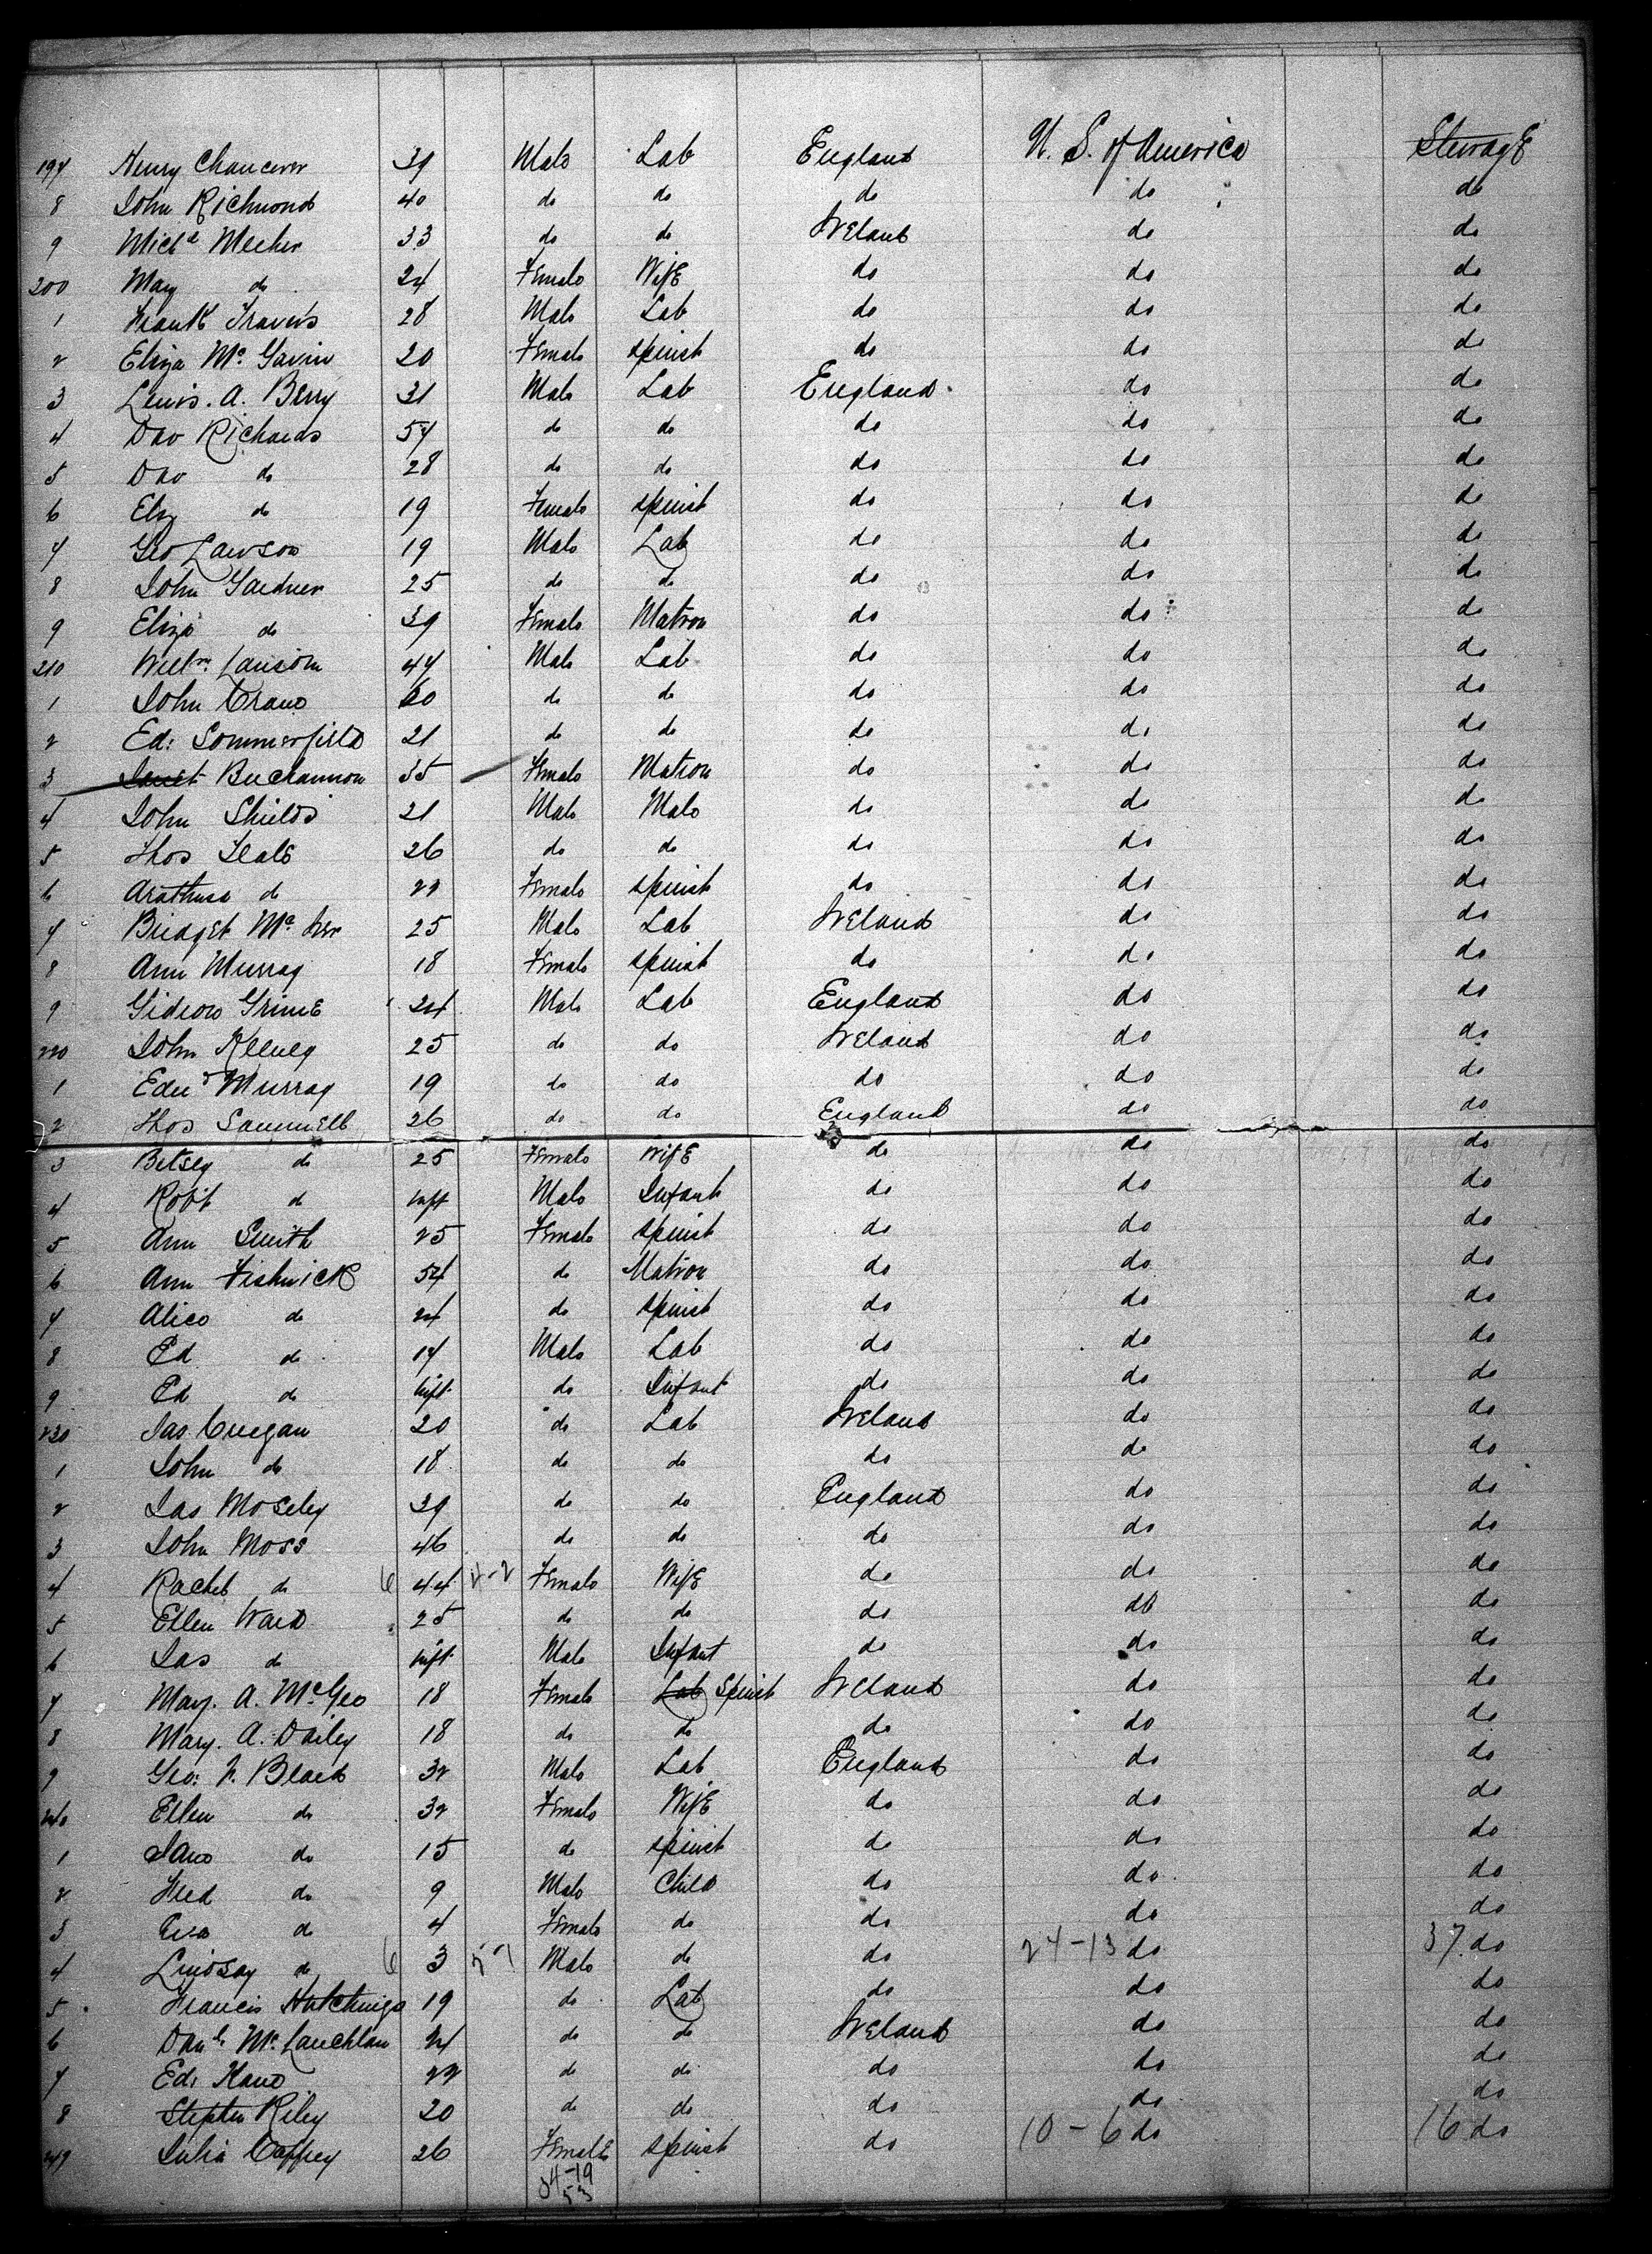 197 Henry Chancerer 39 Male Lab England U. S. of America Steerage
8 John Richmond 40 do do do do do
9 Michl Meeher 33 do do Ireland do do
200 Mary do 24 Female Wife do do do
1 Frank Travers 28 Male Lab do do do
2 Eliza Mc Gavin 20 Female Spinst do do do
3 Lewis. A. Berry 31 Male Lab England do do
4 Dav Richards 57 do do do do do
5 Dav do 28 do do do do do
6 Eliz do 19 Female Spinst do do do
7 Geo Lawson 19 Male Lab do do do
8 John Gardner 25 do do do do do
9 Eliza do 39 Female Matron do do do
210 Willm Lansom 47 Male Lab do do do
1 John Crane 60 do do do do do
2 Ed: Sommerfield 21 do do do do do
3 Janet Buckannon 35 Female Matron do do do
4 John Shields 21 Male Male do do do
5 Thos Seale 26 do do do do do
6 Arathusa do 22 Female Spinst do do do
7 Bridget Mc 25 Male Lab Ireland do do
8 Ann Murray 18 Female Spinst do do do
9 Gideon Grime 24 Male Lab England do do
220 John Keeney 25 do do Ireland do do
1 Edwd Murray 19 do do do do do
2 Thos Sammell 26 do do England do do
3 Betsey do 25 Female Wife do do do
4 Robt do inft Male Infant do do do
5 Ann Smith 25 Female Spinst do do do
6 Ann Fishwick 54 do Matron do do do
7 Alice do 24 do Spinst do do do
8 Ed do 17 Male Lab do do do
9 Ed do inft do Infant do do do
230 Jas Cregan 20 do Lab Ireland do do
1 John do 18 do do do do do
2 Jas Moseley 39 do do England do do
3 John Moss 46 do do do do do
4 Rachel do 6 44 4-2 Female Wife do do do
5 Ellen Ward 25 do do do do do
6 Jas do inft Male Infant do do do
7 Mary. A. McGee 18 Female Lab Spinst Ireland do do
8 Mary. A. Dailey 18 do do do do do
9 Geo: N. Black 32 Male Lab England do do
240 Ellen do 32 Female Wife do do do
1 Jane do 15 do Spinst do do do
2 Fred do 9 Male Child do do do
3 Eva do 4 Female do do do do
4 Lindsay do 6 3 5-1 Male do do 24-13 do 37 do
5 Francis Hutchings 19 do Lab do do do
6 Danl Mc Lauchlan 24 do do Ireland do do
7 Ed: Kane 22 do do do do do
8 Stephen Riley 20 do do do do do
249 Julia Caffrey 26 Female Spinst do 10-6 do 16 do
34-19
53